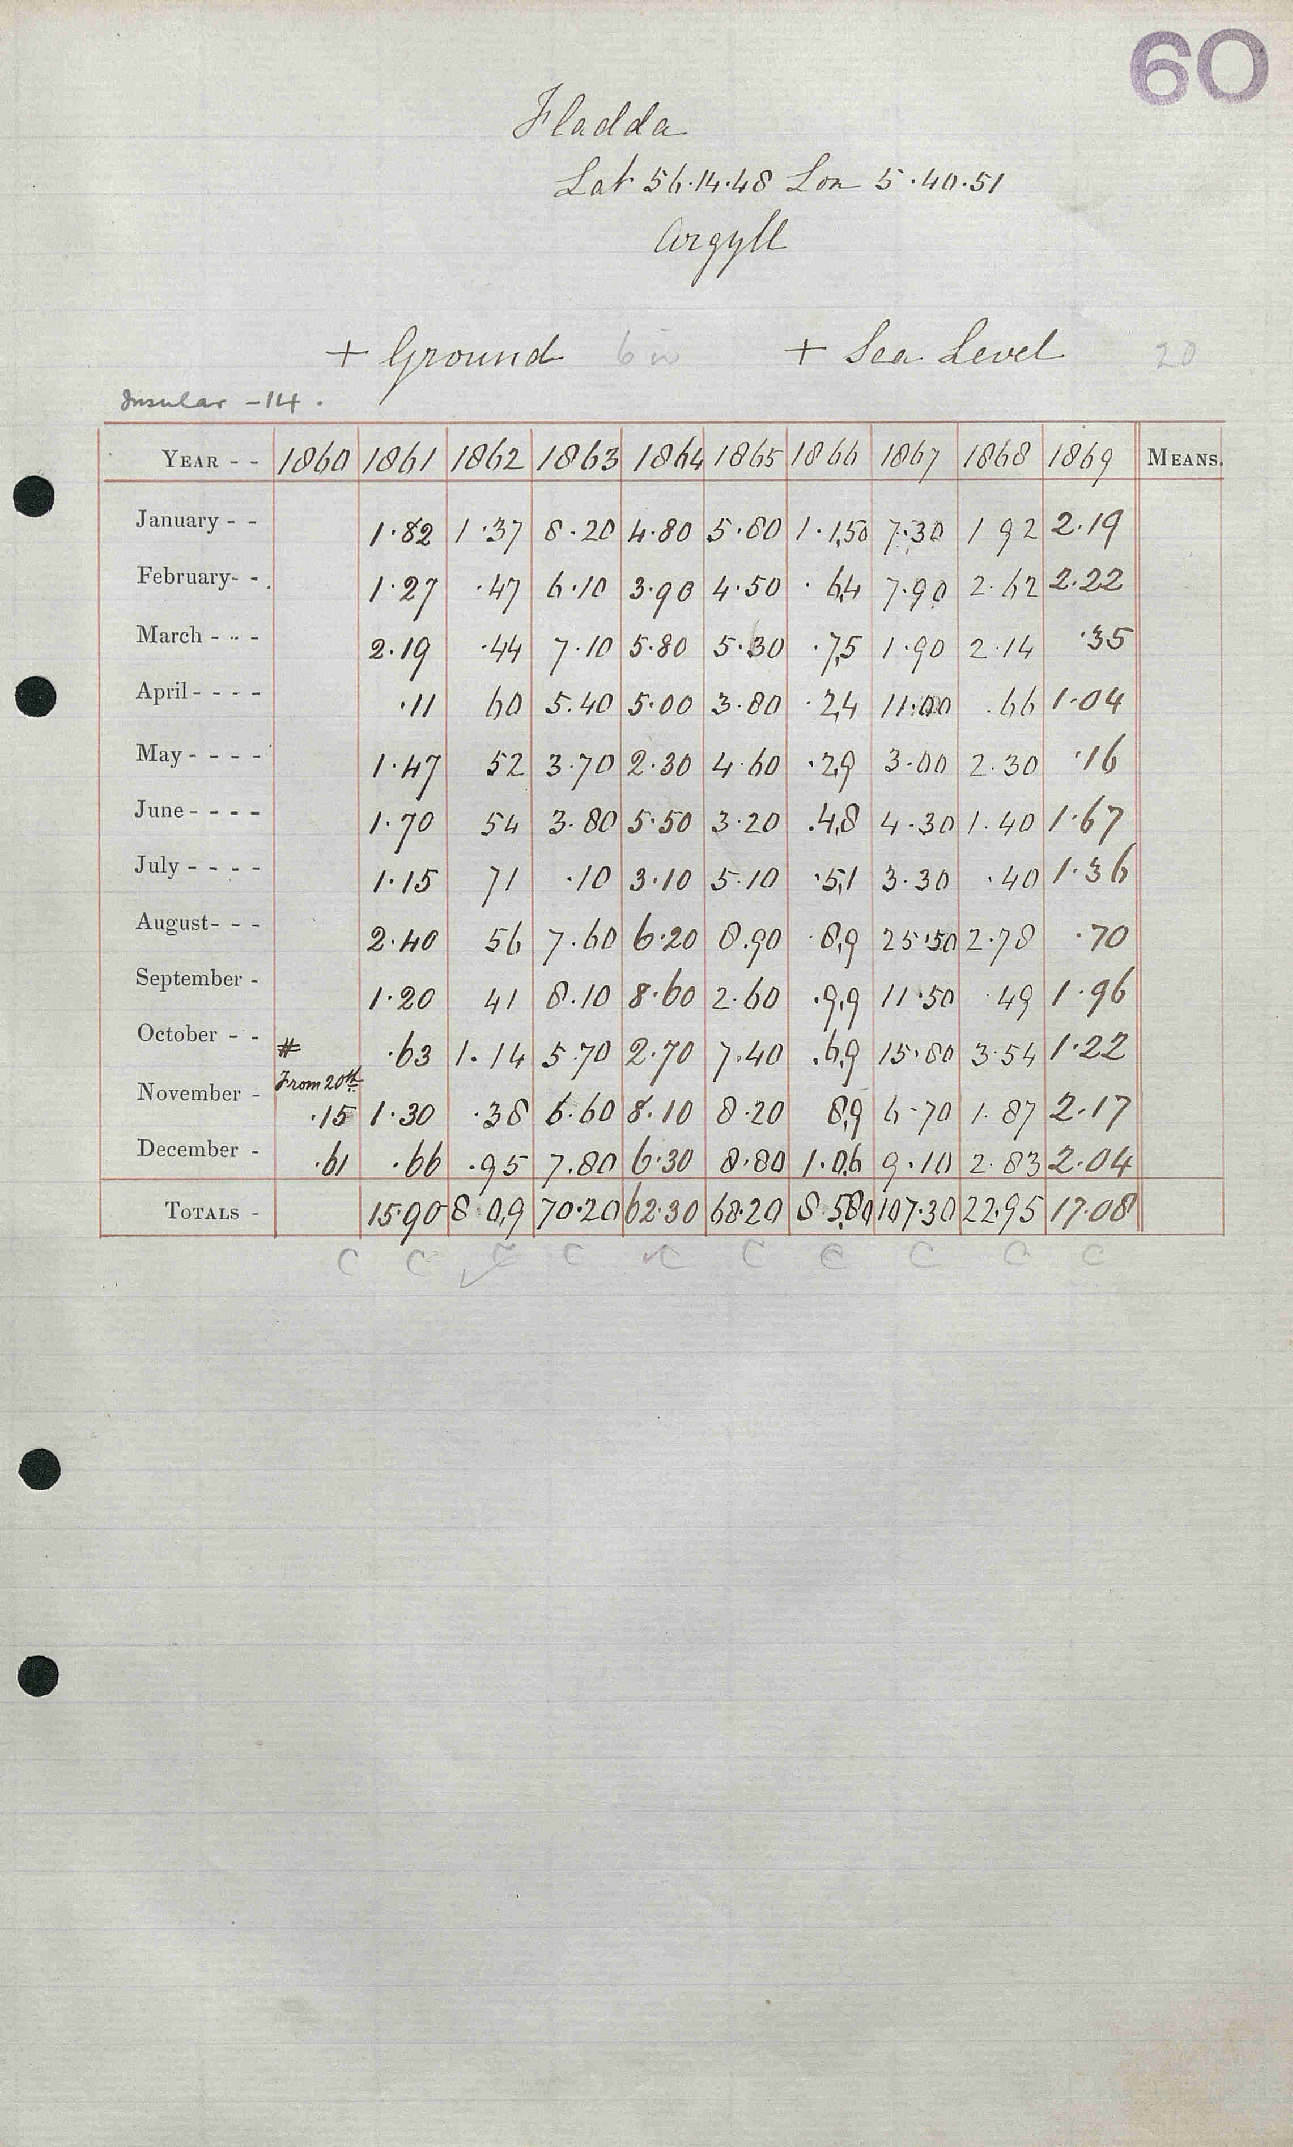 60
Fladda
Lat 56.14.48 Lon 5.40.51
Argyll
+ Ground 6 in + Sea Level 20
Insular - 14.
YEAR - - 1860 1861 1862 1863 1864 1865 1866 1867 1868 1869 MEANS.
January - - 1.82 1.37 8.20 4.80 5.80 1.1,50 7.30 1 92 2.19
February- - 1.27 .47 6.10 3.90 4.50 .6,4 7.90 2.62 2.22
March - - - 2.19 .44 7.10 5.80 5.30 .7,5 1.90 2.14 .35
April - - - - .11 60 5.40 5.00 3.80 .2,4 11.00 .66 1.04
May - - - - 1.47 52 3.70 2.30 4.60 .2,9 3.00 2.30 .16
June - - - - 1.70 54 3.80 5.50 3.20 .4,8 4.30 1.40 1.67
July - - - - 1.15 71 .10 3.10 5.10 .5,1 3.30 .40 1.36
August- - - 2.40 56 7.60 6.20 8.90 .8,9 25.50 2.78 .70
September - 1.20 41 8.10 8.60 2.60 .9,9 11.50 .49 1.96
October - - # .63 1.14 5.70 2.70 7.40 .6,9 15.80 3.54 1.22
From 20th
November - .15 1.30 .38 6.60 8.10 8.20 8,9 6.70 1.87 2.17
December - .61 .66 .95 7.80 6.30 8.80 1.0,6 9.10 2.83 2.04
TOTALS - 15.90 8 0,9 70.20 62.30 68.20 8.5,80 107.30 22.95 17.08
C C C C C C C C C C